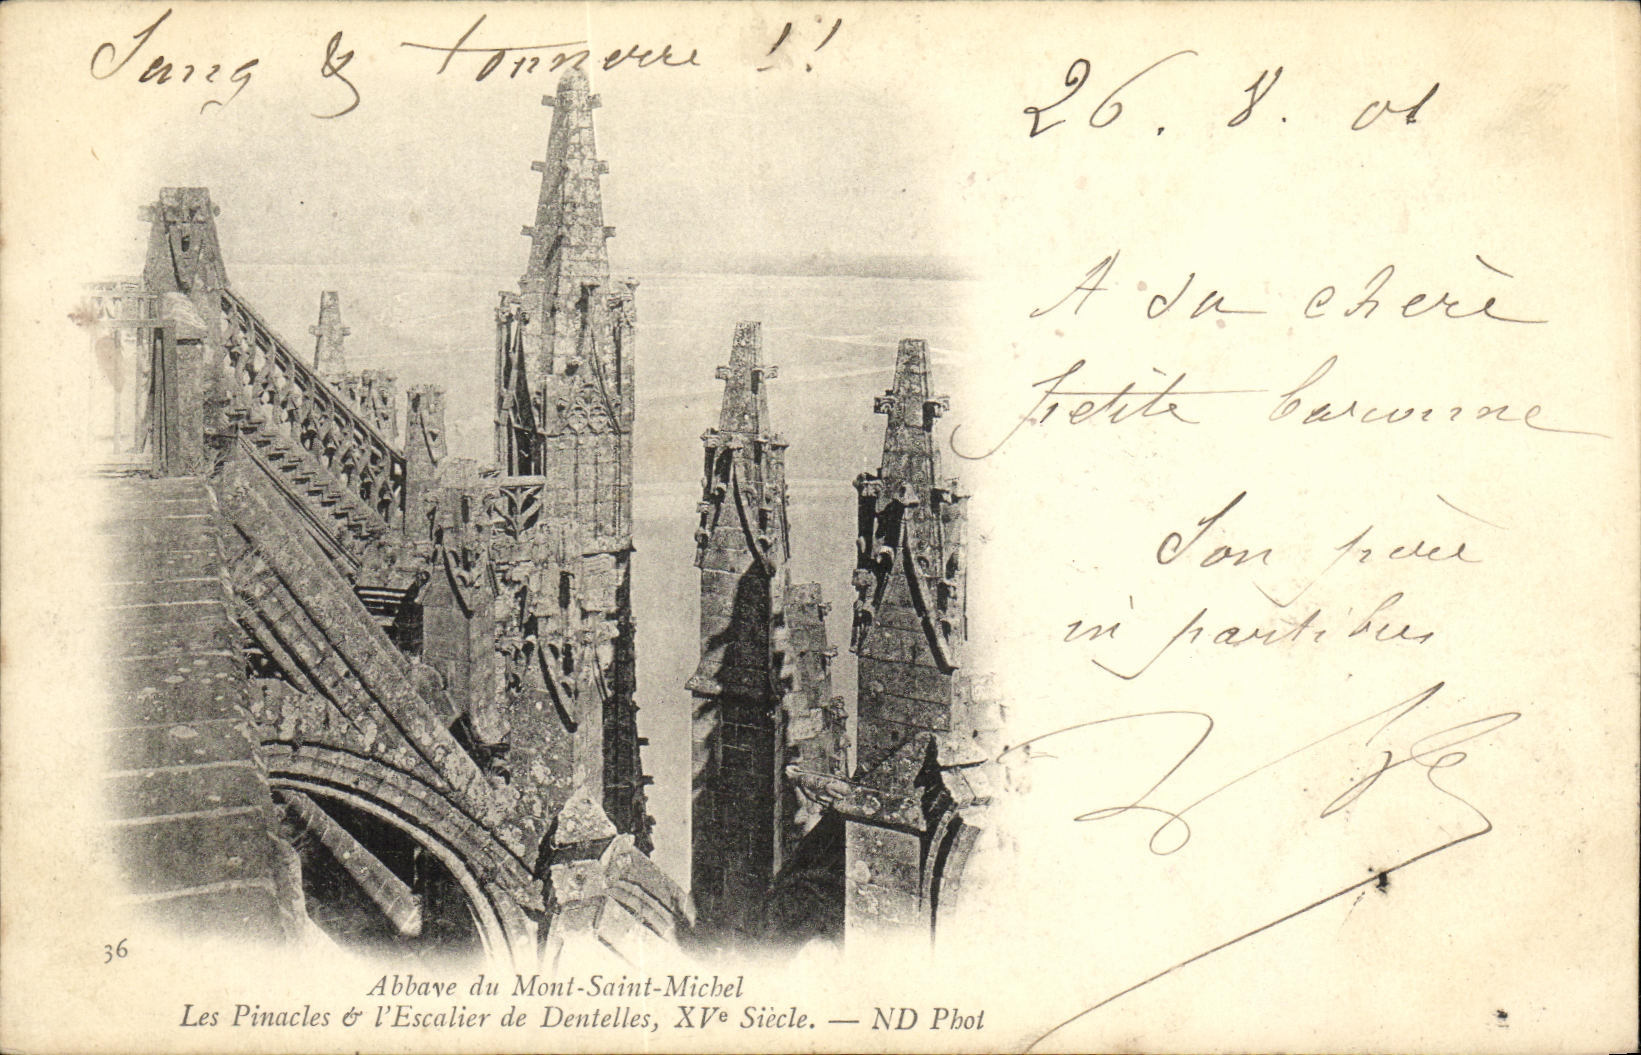 Sang & tonnerre !!
26. 8. 01
A sa chère
petite baronne
Son père
in partibus
36
Abbaye du Mont-Saint-Michel
Les Pinacles & l'Escalier de Dentelles, XVe Siècle. — ND Phot